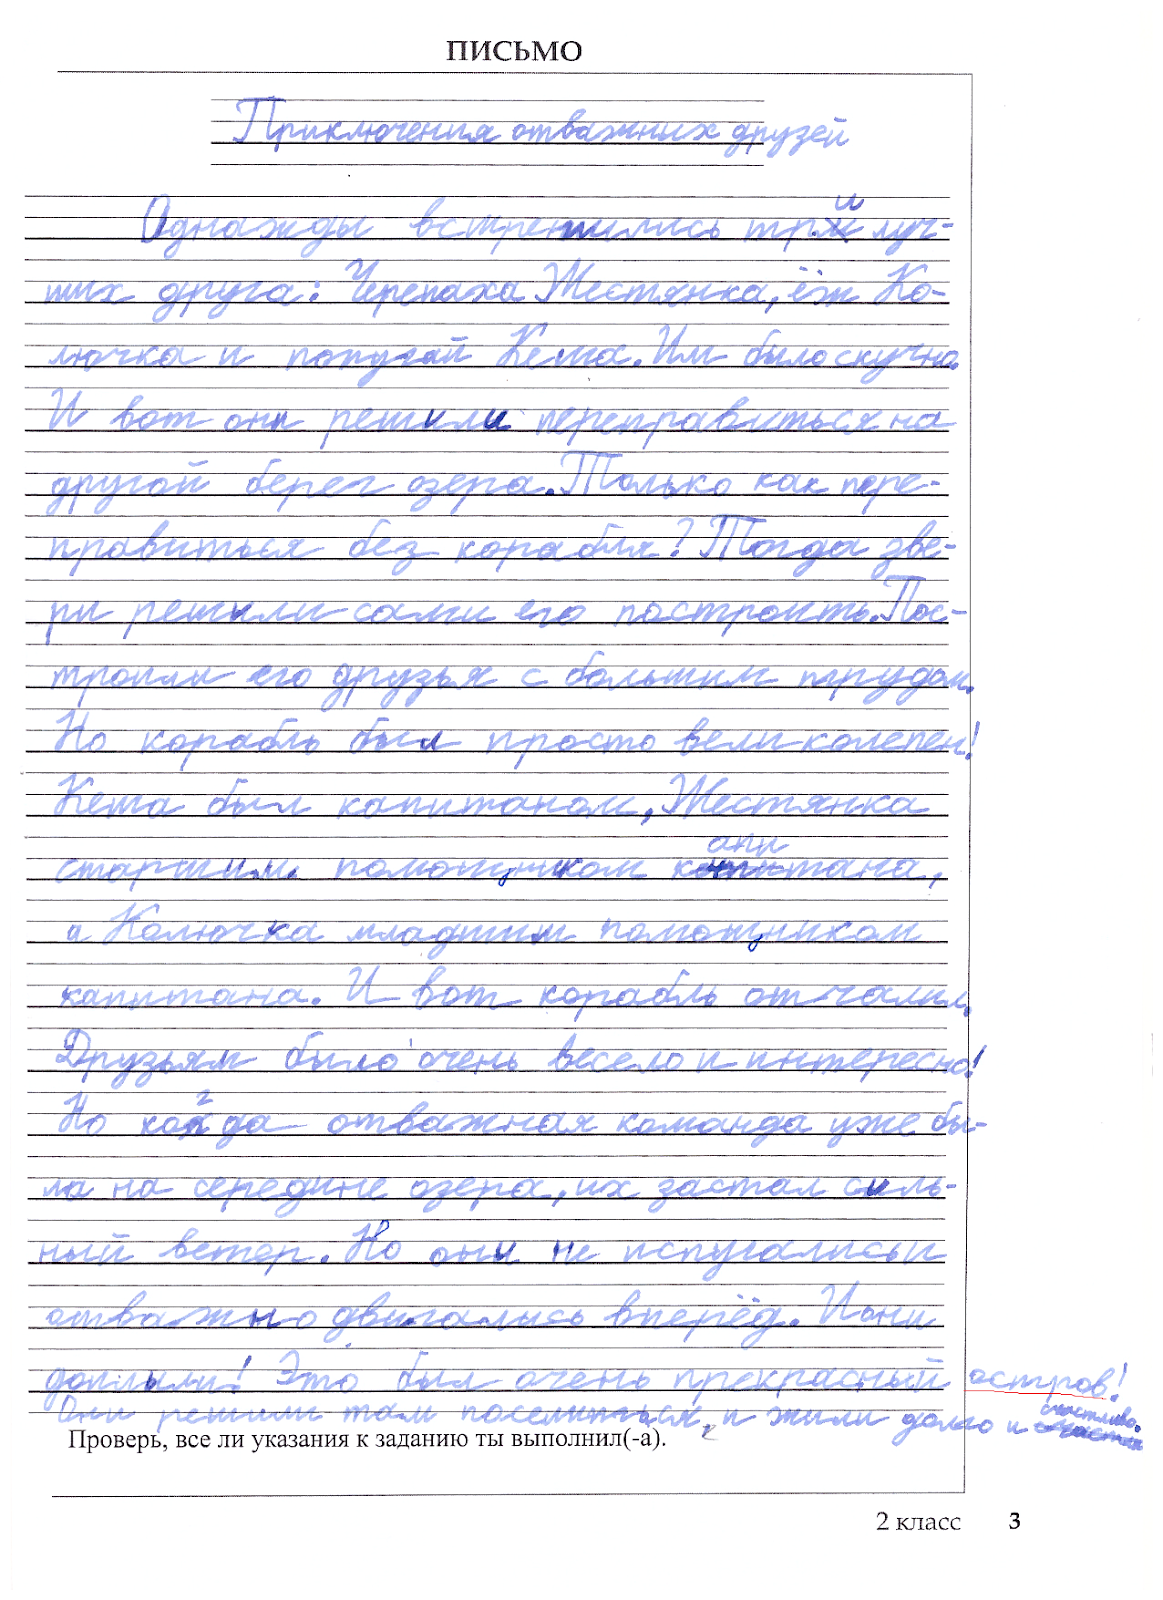 ПИСЬМО
Приключения отважных друзей
Однажды встретились три луч-
ших друга: Черепаха Жестянка, ёж Ко-
лючка и попугай Кеша. Им было скучно.
И вот они решили переправиться на
другой берег озера. Только как пере-
правиться без корабля? Тогда зве-
ри решили сами его построить. Пос-
троили его друзья с большим трудом.
Но корабль был просто великолепен!
Кеша был капитаном, Жестянка
старшим помощником капитана,
а Колючка младшим помощником
капитана. И вот корабль отчалил.
Друзьям было очень весело и интересно!
Но когда отважная команда уже бы-
ла на середине озера, их застал силь-
ный ветер. Но они не испугались и
отважно двигались вперёд. И они
доплыли! Это был очень прекрасный остров!
Они решили там поселиться, и жили долго и счастливо.
Проверь, все ли указания к заданию ты выполнил(-а).
2 класс 3